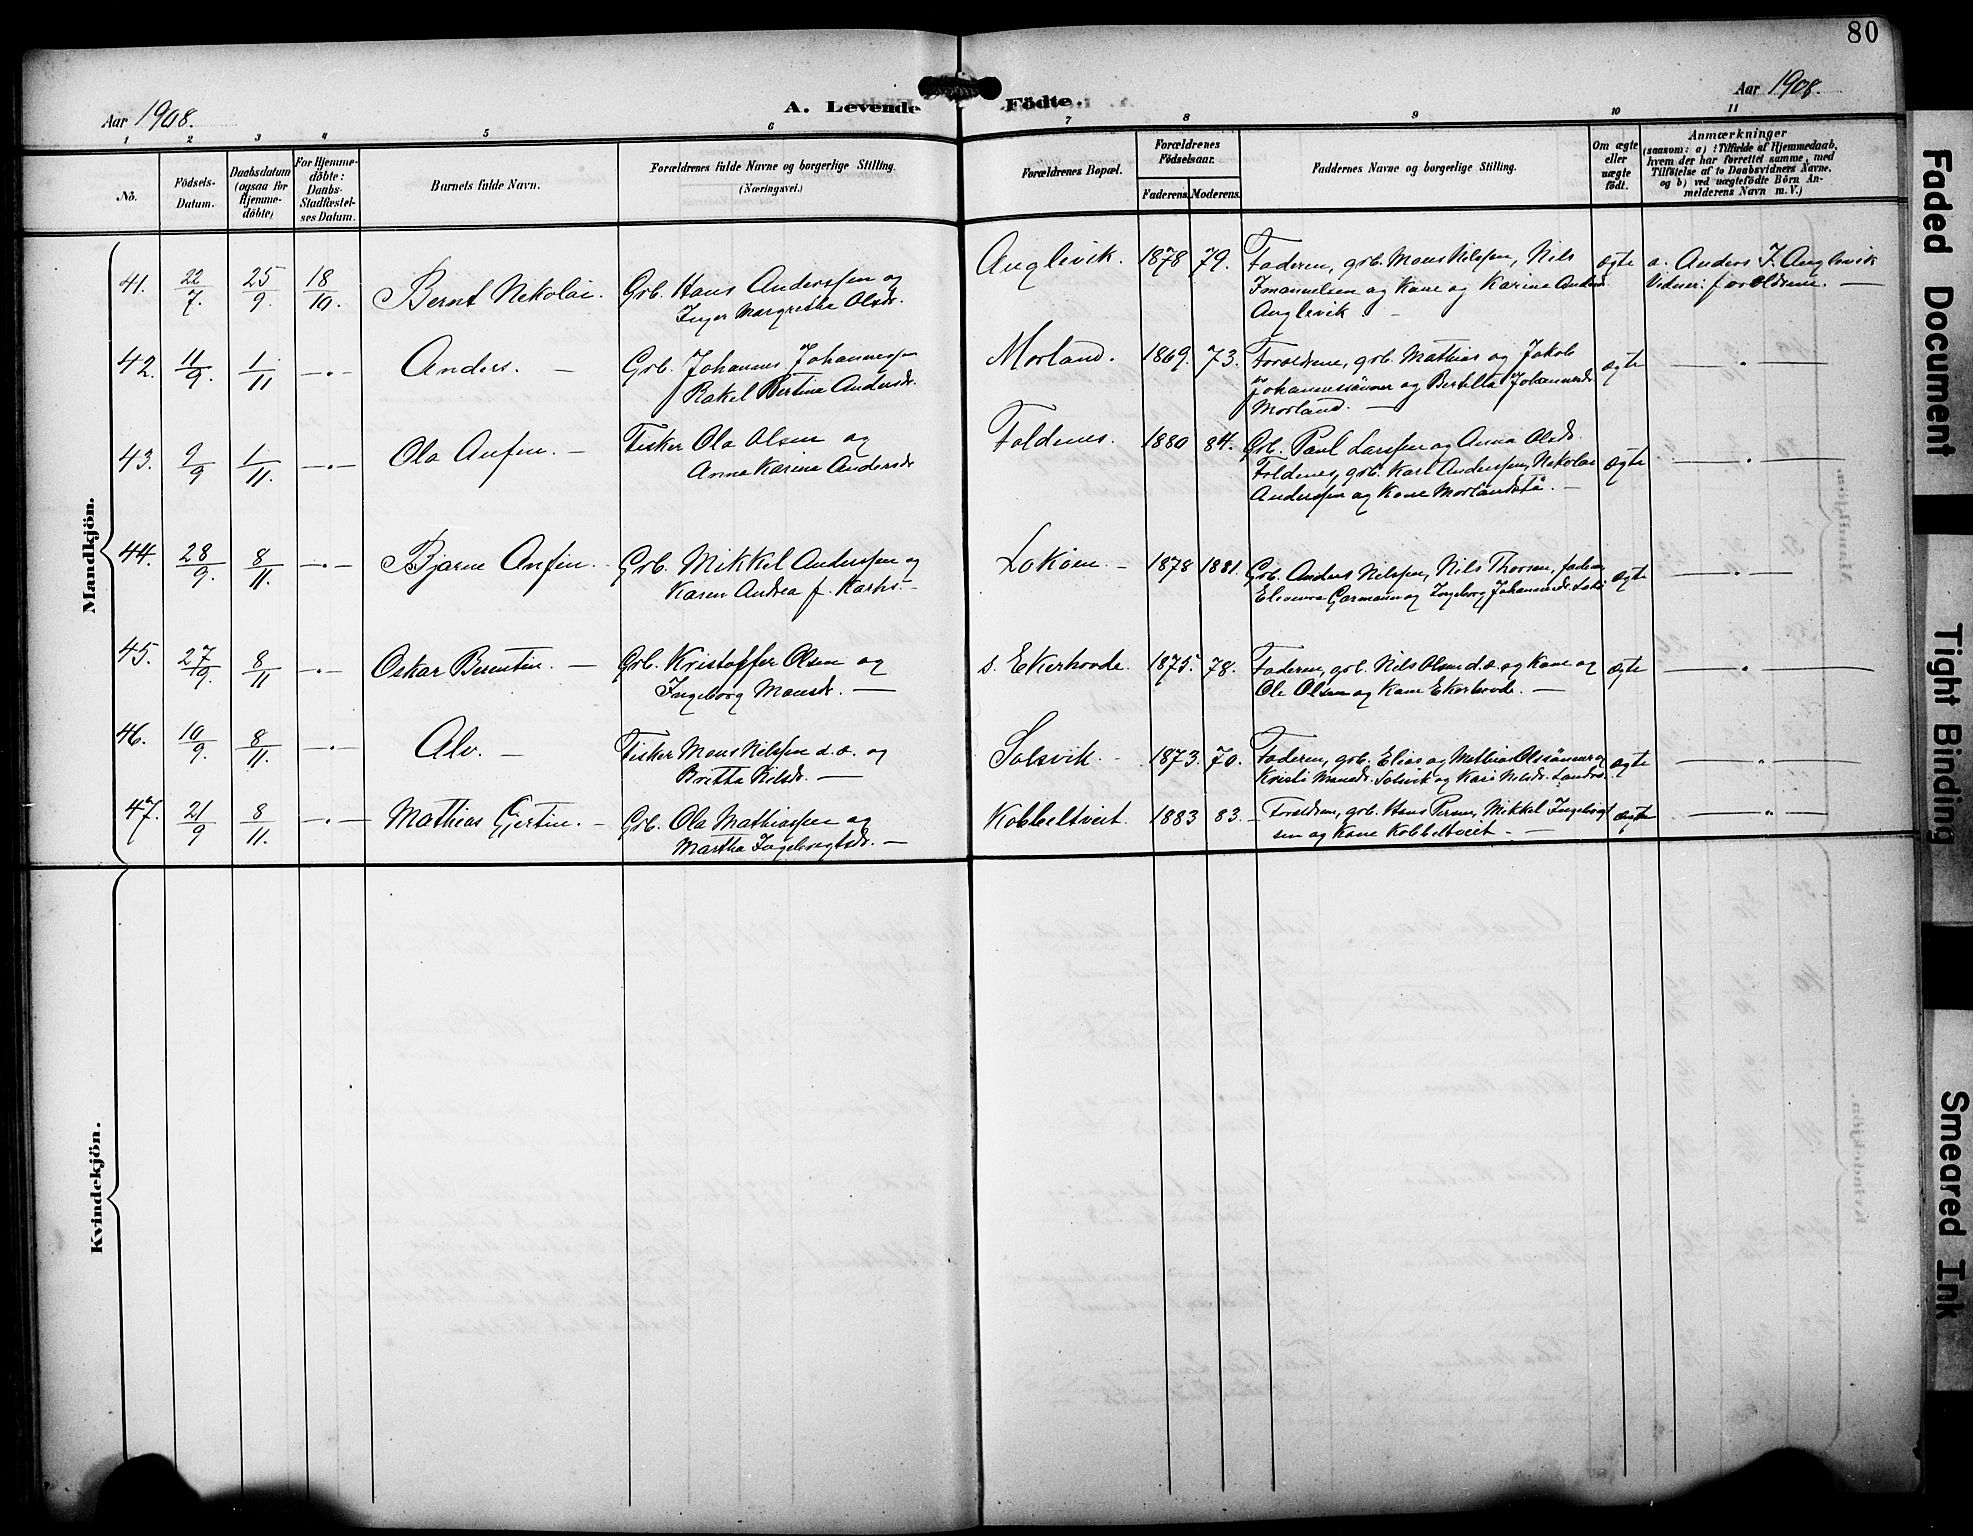 80
Aar 1908.
A. Levende Födte.
Aar 1908.
1 2 3 4 5 6 7 8 9 10 11
No.
Födsels-
Datum.
Daabsdatum
(ogsaa for
Hjemme-
döbte)
For Hjemme-
döbte:
Daabs-
Stadfæstel-
ses Datum.
Barnets fulde Navn.
Forældrenes fulde Navne og borgerlige Stilling.
(Næringsvei.)
Forældrenes Bopæl.
Forældrenes
Födselsaar.
Faderens. Moderens.
Faddernes Navne og borgerlige Stilling.
Om ægte
eller
uægte
födt.
Anmærkninger
(saasom: a) i Tilfælde af Hjemmedaab,
hvem der har forrettet samme, med
Tilföielse af to Daabsvidners Navne.
og b) ved uægtefödte Börn An-
melderens Navn m. V.)
Mandkjön.
41. 22/7. 25/9. 18/10. Bernt Nekolai. Grb. Hans Anderssen og
Inger Margrethe Olsdr.
Anglevik. 1878 79. Faderen, grb. Mons Nilssen, Nils
Imanuelsen og Kone og Karina Andersd.
Anglevik.
ægte a. Anders I. Anglevik
Vidner: forældrene. —
42. 11/9. 1/11 — Anders. — Grb. Johannes Johannessen
Rakel Bertine Andersdr.
Morland. 1869. 73. Forældrene, grb. Mathias og Jakob
Johannessönner og Bertilla Johannesdr.
Morland. —
ægte
43. 9/9 1/11. — Ola Anfin. — Fisker Ola Olsen og
Anna Karina Andersdr
Foldenes. 1880 84. Grb. Paul Larssen og Anna Olsdr.
Foldenes, grb. Karl Anderssen, Nekolai
Anderssen og Kone Morlandstö. —
ægte
44. 28/9. 8/11. — Bjarne Anfin. — Grb. Mikkel Anderssen og
Karen Andrea f. —
Loköen. — 1878 1881. Grb. Anders Nilssen, Nils Thorsen, faderen,
Elevine Garmann og Ingeborg Johannesdr.
ægte
45. 27/9. 8/11 — Oskar Berentin. — Grb. Kristoffer Olsen og
Ingeborg Monsdr. —
s. Ekerhovde. 1875. 78. Faderen, grb. Nils Olsen d.æ. og Kone og
Ole Olsen og Kone Ekerhovde. —
ægte
46. 10/9. 8/11. — Alv. — Fisker Mons Nilssen d.æ. og
Britta Nilsdr. —
Solsvik. — 1873. 70. Faderen, grb. Elias og Mathias Olssönner og
Kristi Monsdr. Solsvik og Kari Nilsdr. Landro.
ægte
47. 21/9 8/11. — Mathias Gjertin. — Grb. Ola Mathiassen og
Martha Ingebrigtsdr. —
Kobbeltveit. 1883 83. — Forældrene, grb. Hans Persen, Mikkel Ingebrigt
sen og Kone Kobbeltveit. —
ægte
Kvindekjön.
Faded Document
Tight Binding
Smeared Ink